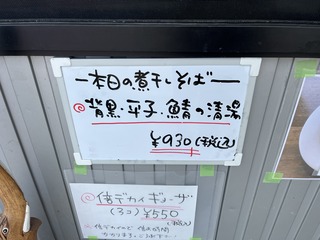 本日の煮干しそば
◎背黒・平子・鯖の清湯
¥930(税込)
◎倍デカイギョーザ
(3コ)¥550
(税込)